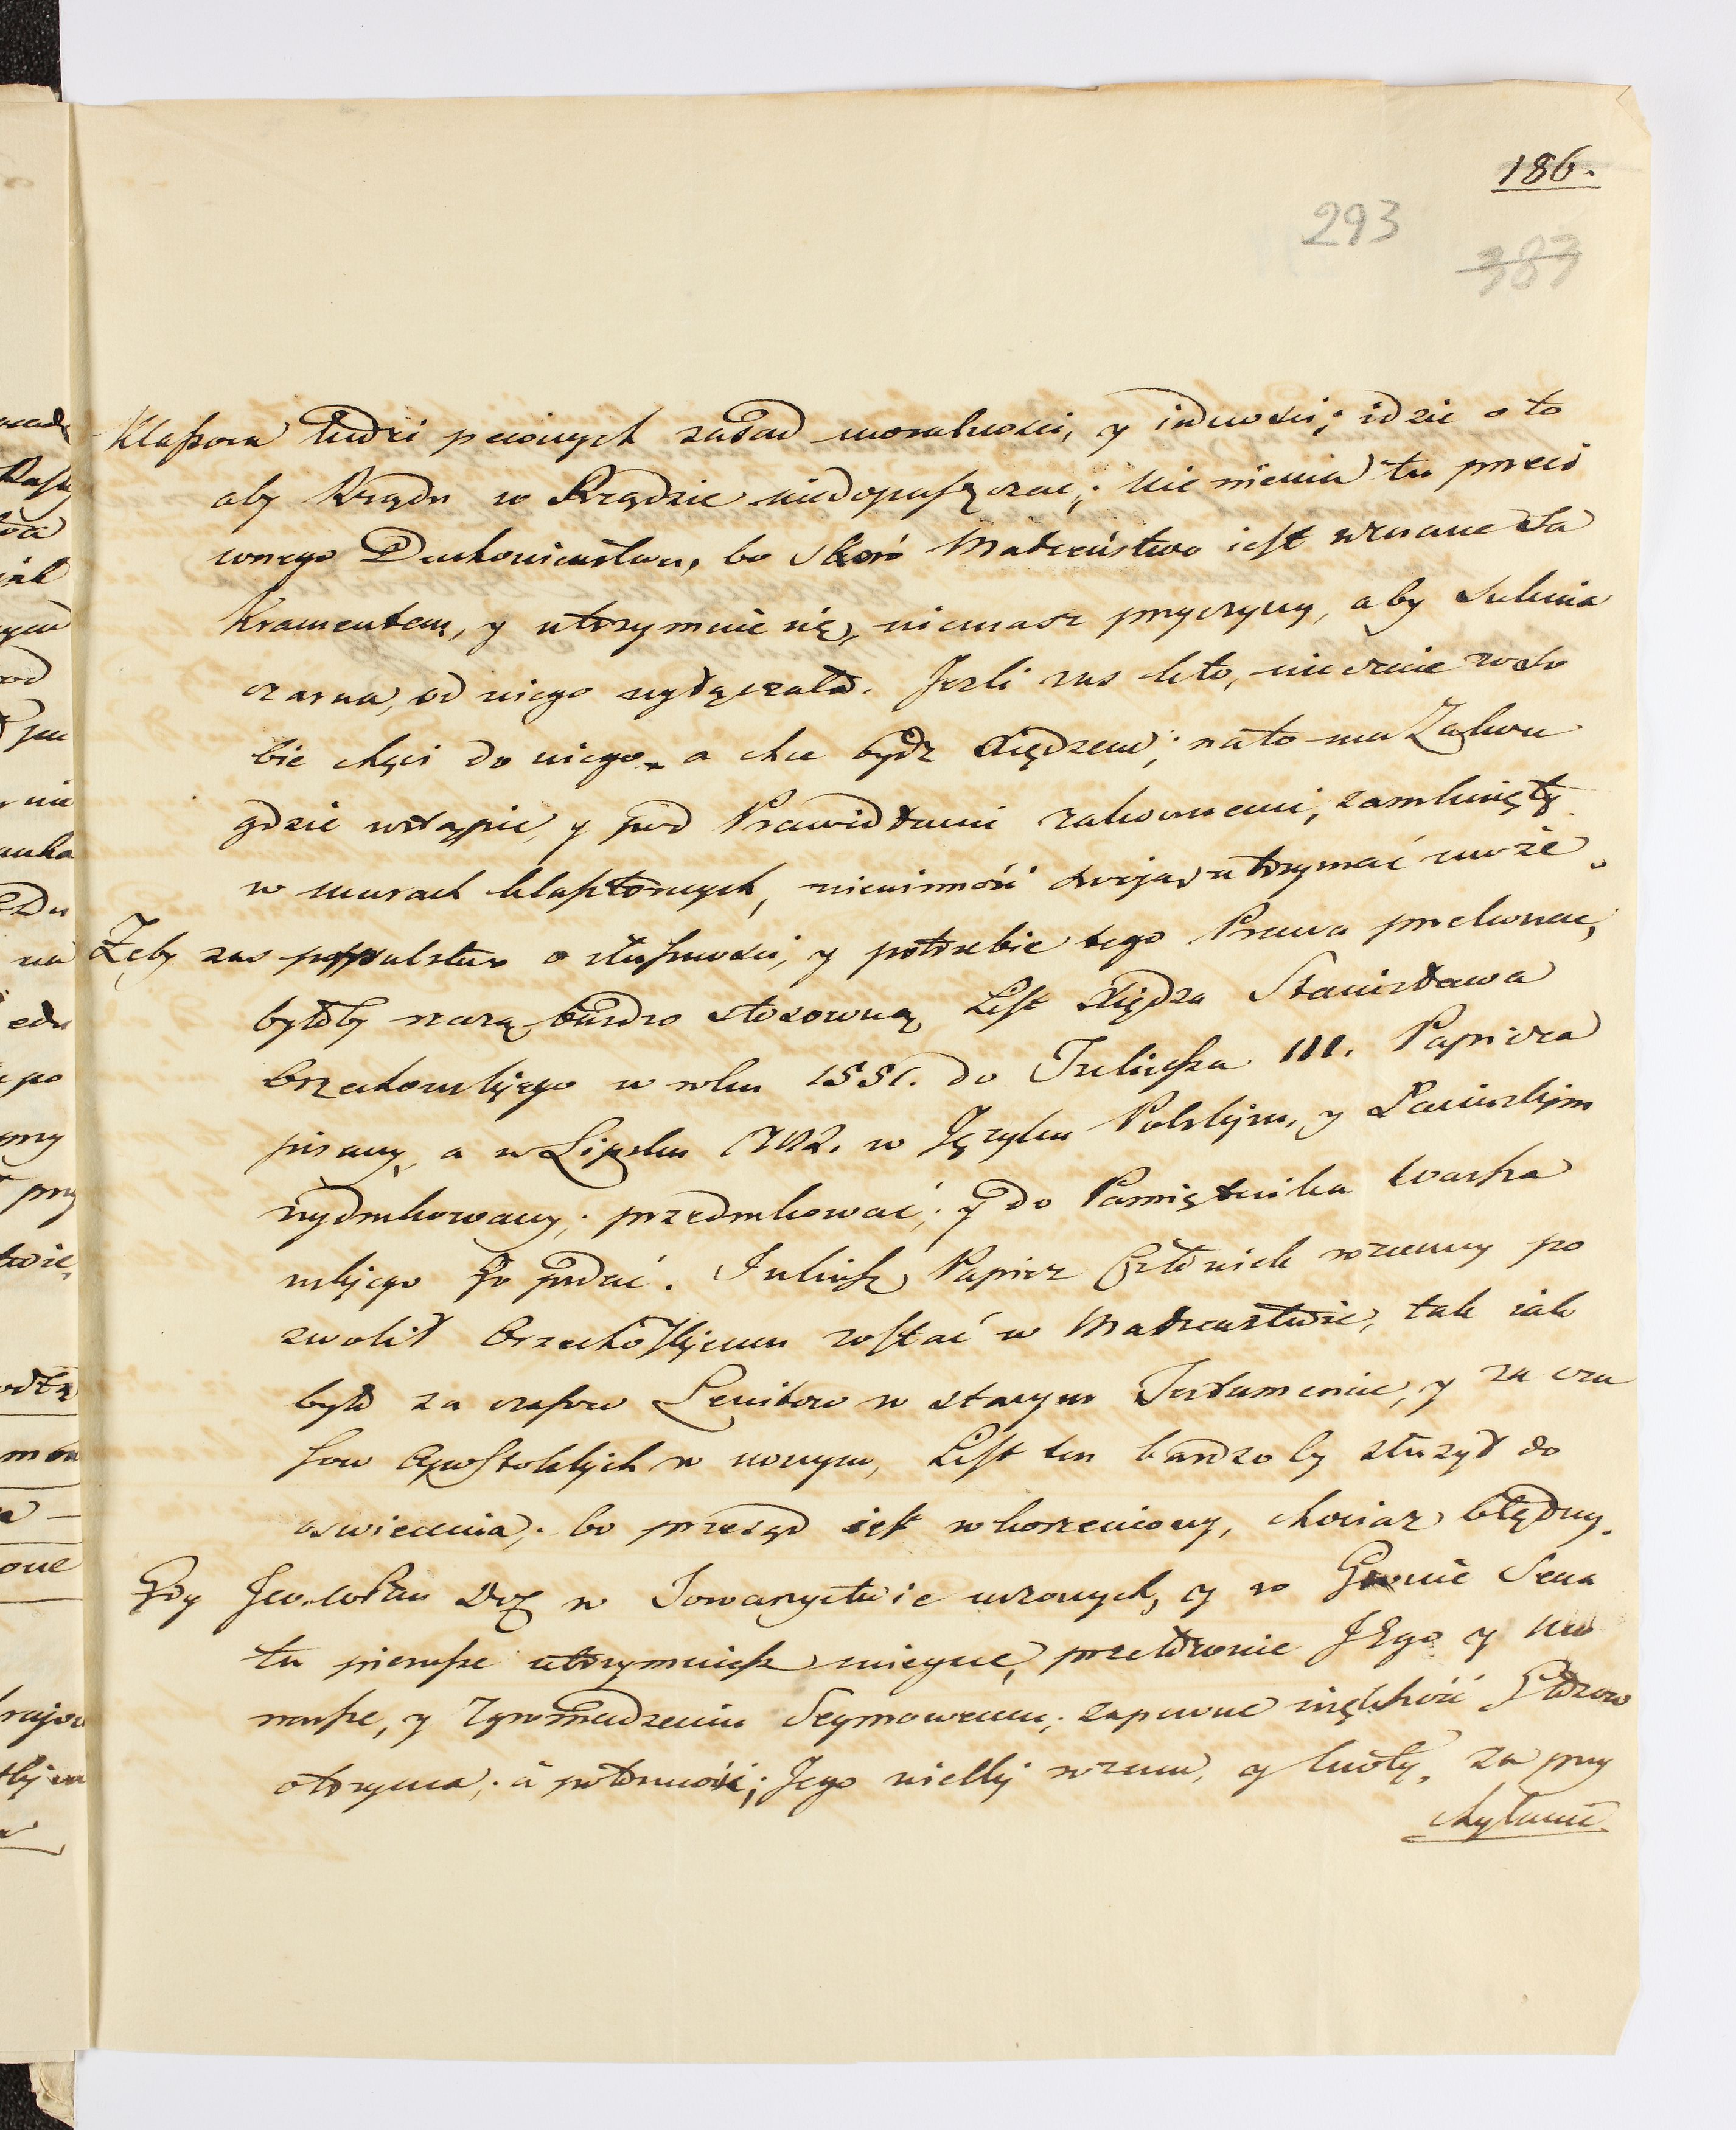 186.
293
383
Klassow ludzi pewnych zasad moralności, y iedności; idzie o to
aby Rządu w Rządzie niedopuszczac; nie niema tu przeci
wnego Duchowieństwu, bo skoro Małżeństwo iest uznane Sa
kramentem, y utrzymuie się, niemasz przyczyny, aby Suknia
czarna, od niego wyłączała. Jeżli zas kto, nieczuie w so
bie chęci do niego, a chce bydz Xiędzem; na to ma Zakon
gdzie wstąpic, y pod Prawidłami zakonnemi, zamknięty
w murach klasztornych, niewinność swoją utrzymać może.
Żeby zas pospulstwo o słuszności, y potrzebie tego Prawa przekonac,
byłoby rzeczą bardzo stosowną List Xiędza Stanisława
Orzechowskjego w roku 1551. do Juliusza III. Papieża
pisany, a w Lipsku 1782. w Języku Polskjm, y Łacinskjm
wydrukowany; przedrukować; y do Pamiętnika Warsza
wskjego go podać. Juliusz Papież Człowiek rozumny po
zwolił Orzechoskjemu zostać w Małżenstwie, tak iak
było za czasow Lewitow w starym Testamencie, y za cza
sow Apostolskjch w nowym, List ten bardzo by służył do
oswiecenia; bo przesąd iest wkorzeniony, chociaz błędny.
Gdy JW. WPan Drz w Towarzystwie uczonych, y w Gronie Sena
tu pierwsze utrzymuiesz mieysce, przełożenie JEgo y
wsze, y Zgromadzeniu Seymowemu; zapewne większość Głosow
otrzyma; a potomność; Jego wielkj rozum, y cnoty, za przy
chylenie